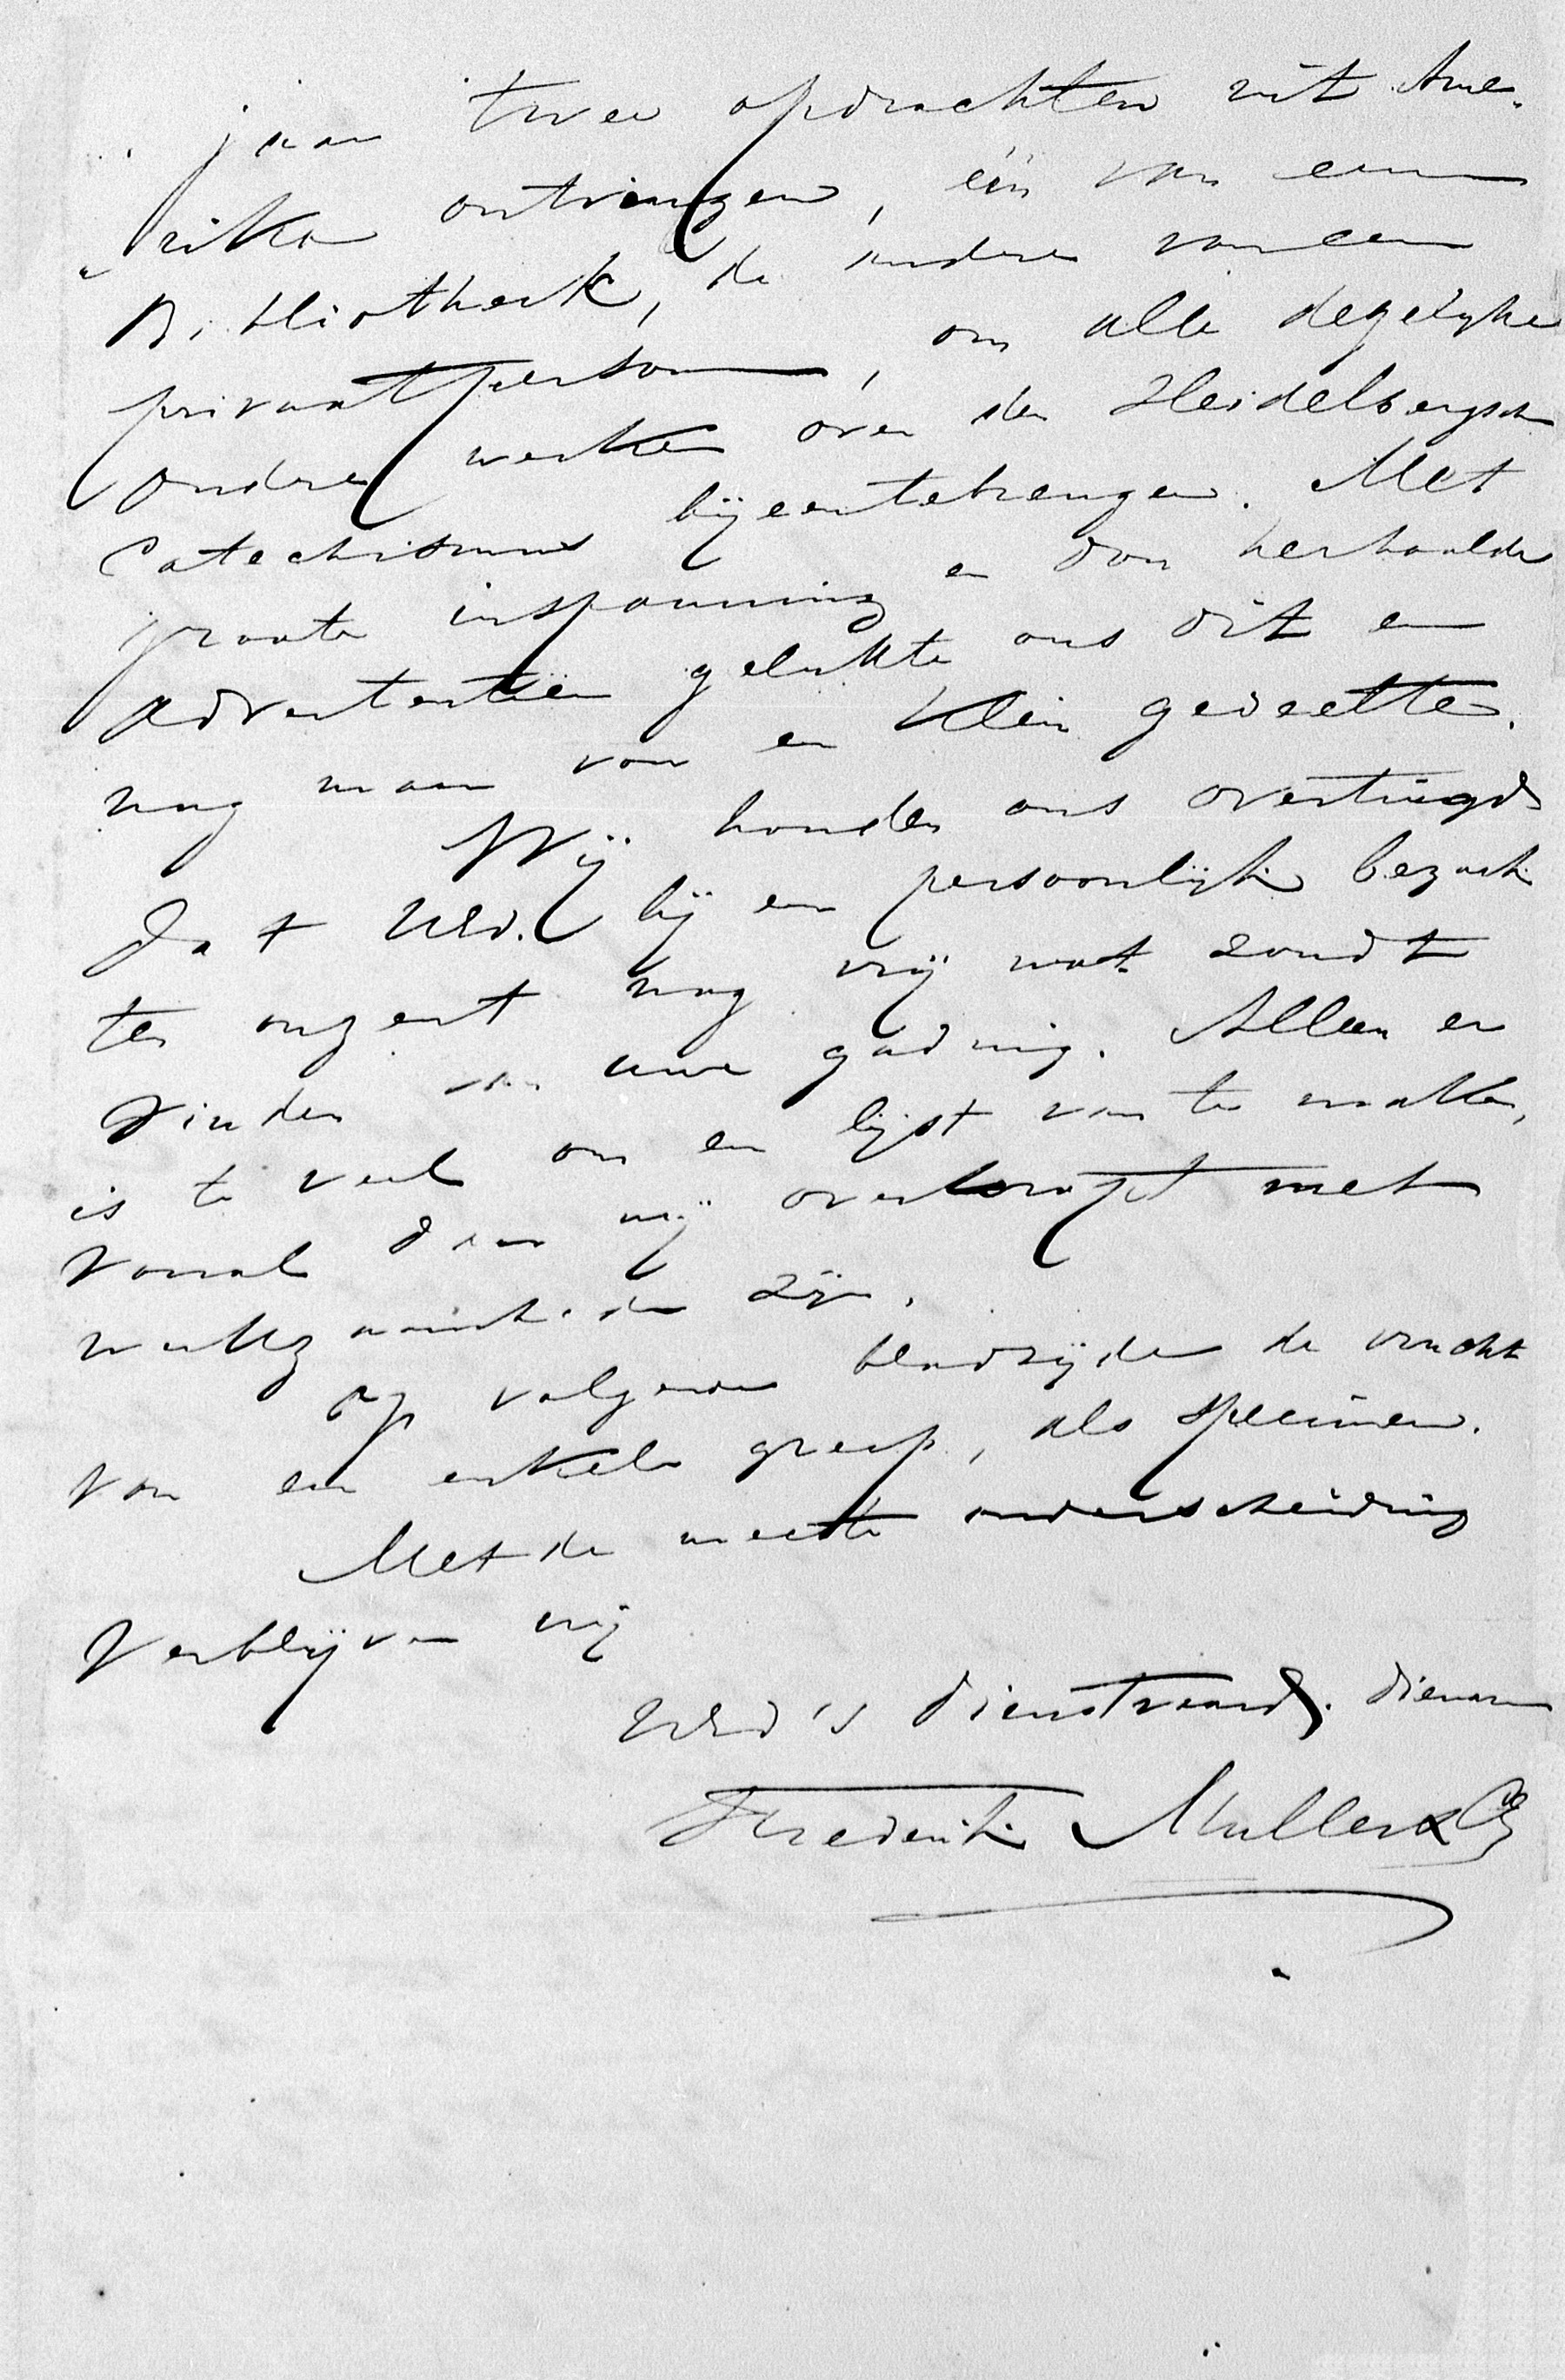 jaar twee opdrachten uit Ame-
"rika ontvingen, één van eene
Bibliotheek, de andere van een
privaatpersoon, om alle degelyke
oudere werken over den Heidelbergsch
Catechismus bijeentebrengen. Met
groote inspanning en door herhaalde
advertentien gelukte ons dit en
nog maar voor en klein gedeelte.
Wij houden ons overtuigd
dat UEd. bij een persoonlijk bezoek
ten onzent nog vrij wat zoudt
vinden van uwe gading. Alleen er
is te veel om en lijst van te maken,
vooral daar wij overkropt met
werkzaamheden zijn.
Op volgende bladzijde de vrucht
van een enkele greep, als specimen.
Met de meeste onderscheiding
Verblijven wij
UEd's dienstvaard. dienaren
Frederik Muller & Co